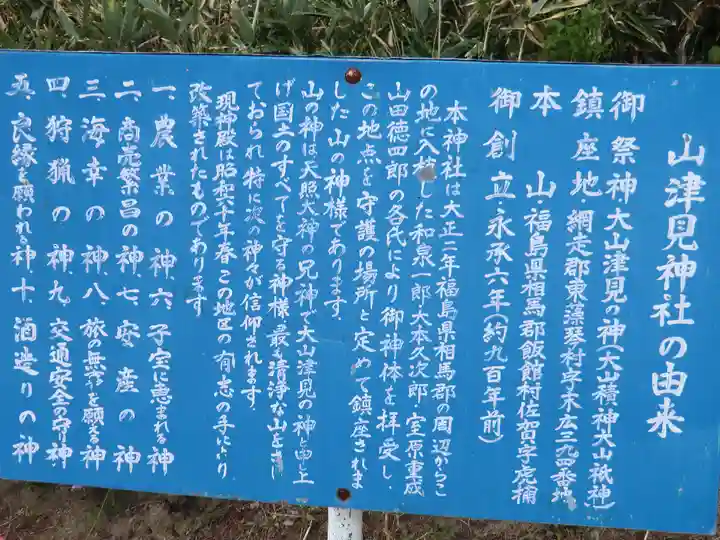 山津見神社の由来
御祭神 大山津見の神(大山積神大山祇神)
鎮座地・網走郡東藻琴村字末広三九四番地
本山・福島県相馬郡飯館村佐賀字虎捕
御創立・永承六年(約九百年前)
本神社は大正二年福島県相馬郡の周辺からこ
の地に入植した和泉一郎大本久次郎、室原重成
山田徳四郎の各氏により御神体を拝受し、
この地点を守護の場所と定めて鎮座されま
した山の神様であります。
山の神は天照大神の兄神で大山津見の神と申し上
げ国土のすべてを守る神様、最も清浄な山をさし
ておられ特に次の神々が信仰されます。
現神殿は昭和六十年春この地区の有志の手により
改築されたものであります
一、農業の神 六、子宝に恵まれる神
二、商売繁昌の神 七、安産の神
三、海幸の神 八、旅の無事を願る神
四、狩猟の神 九、交通安全の守り神
五、良縁を願われる神 十、酒造りの神